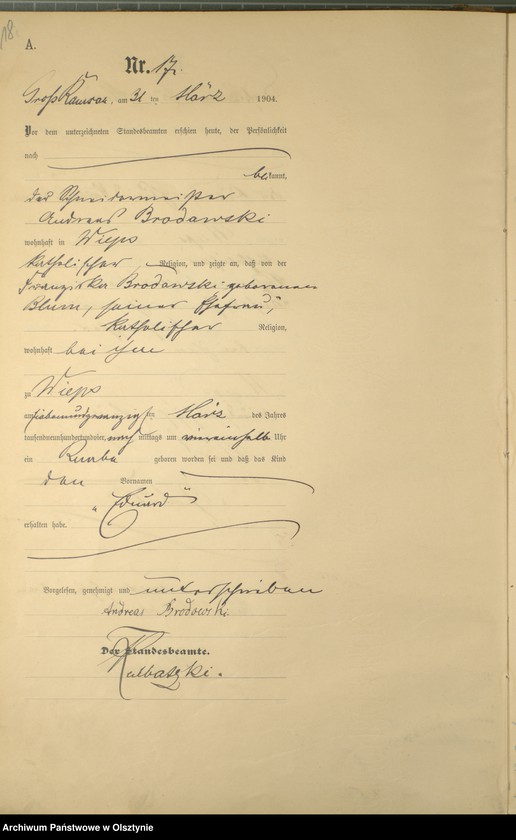 18.
A.
Nr. 17.
Groß Ramsau, am 31 ten März 1904.
Vor dem unterzeichneten Standesbeamten erschien heute, der Persönlichkeit
nach
bekannt,
der Schneidermeister
Andreas Brodawski
wohnhaft in Wieps
katholischer Religion, und zeigte an, daß von der
Franziska Brodawski geborenen
Blum, seiner Ehefrau,
katholischer Religion,
wohnhaft bei ihm
zu Wieps
am siebenundzwanzigsten März des Jahres
tausendneunhundertundvier, nachmittags um viereinhalb Uhr
ein Knabe geboren worden sei und daß das Kind
den Vornamen
„Eduard“
erhalten habe.
Vorgelesen, genehmigt und unterschrieben
Andreas Brodowski
Der Standesbeamte.
Archiwum Państwowe w Olsztynie